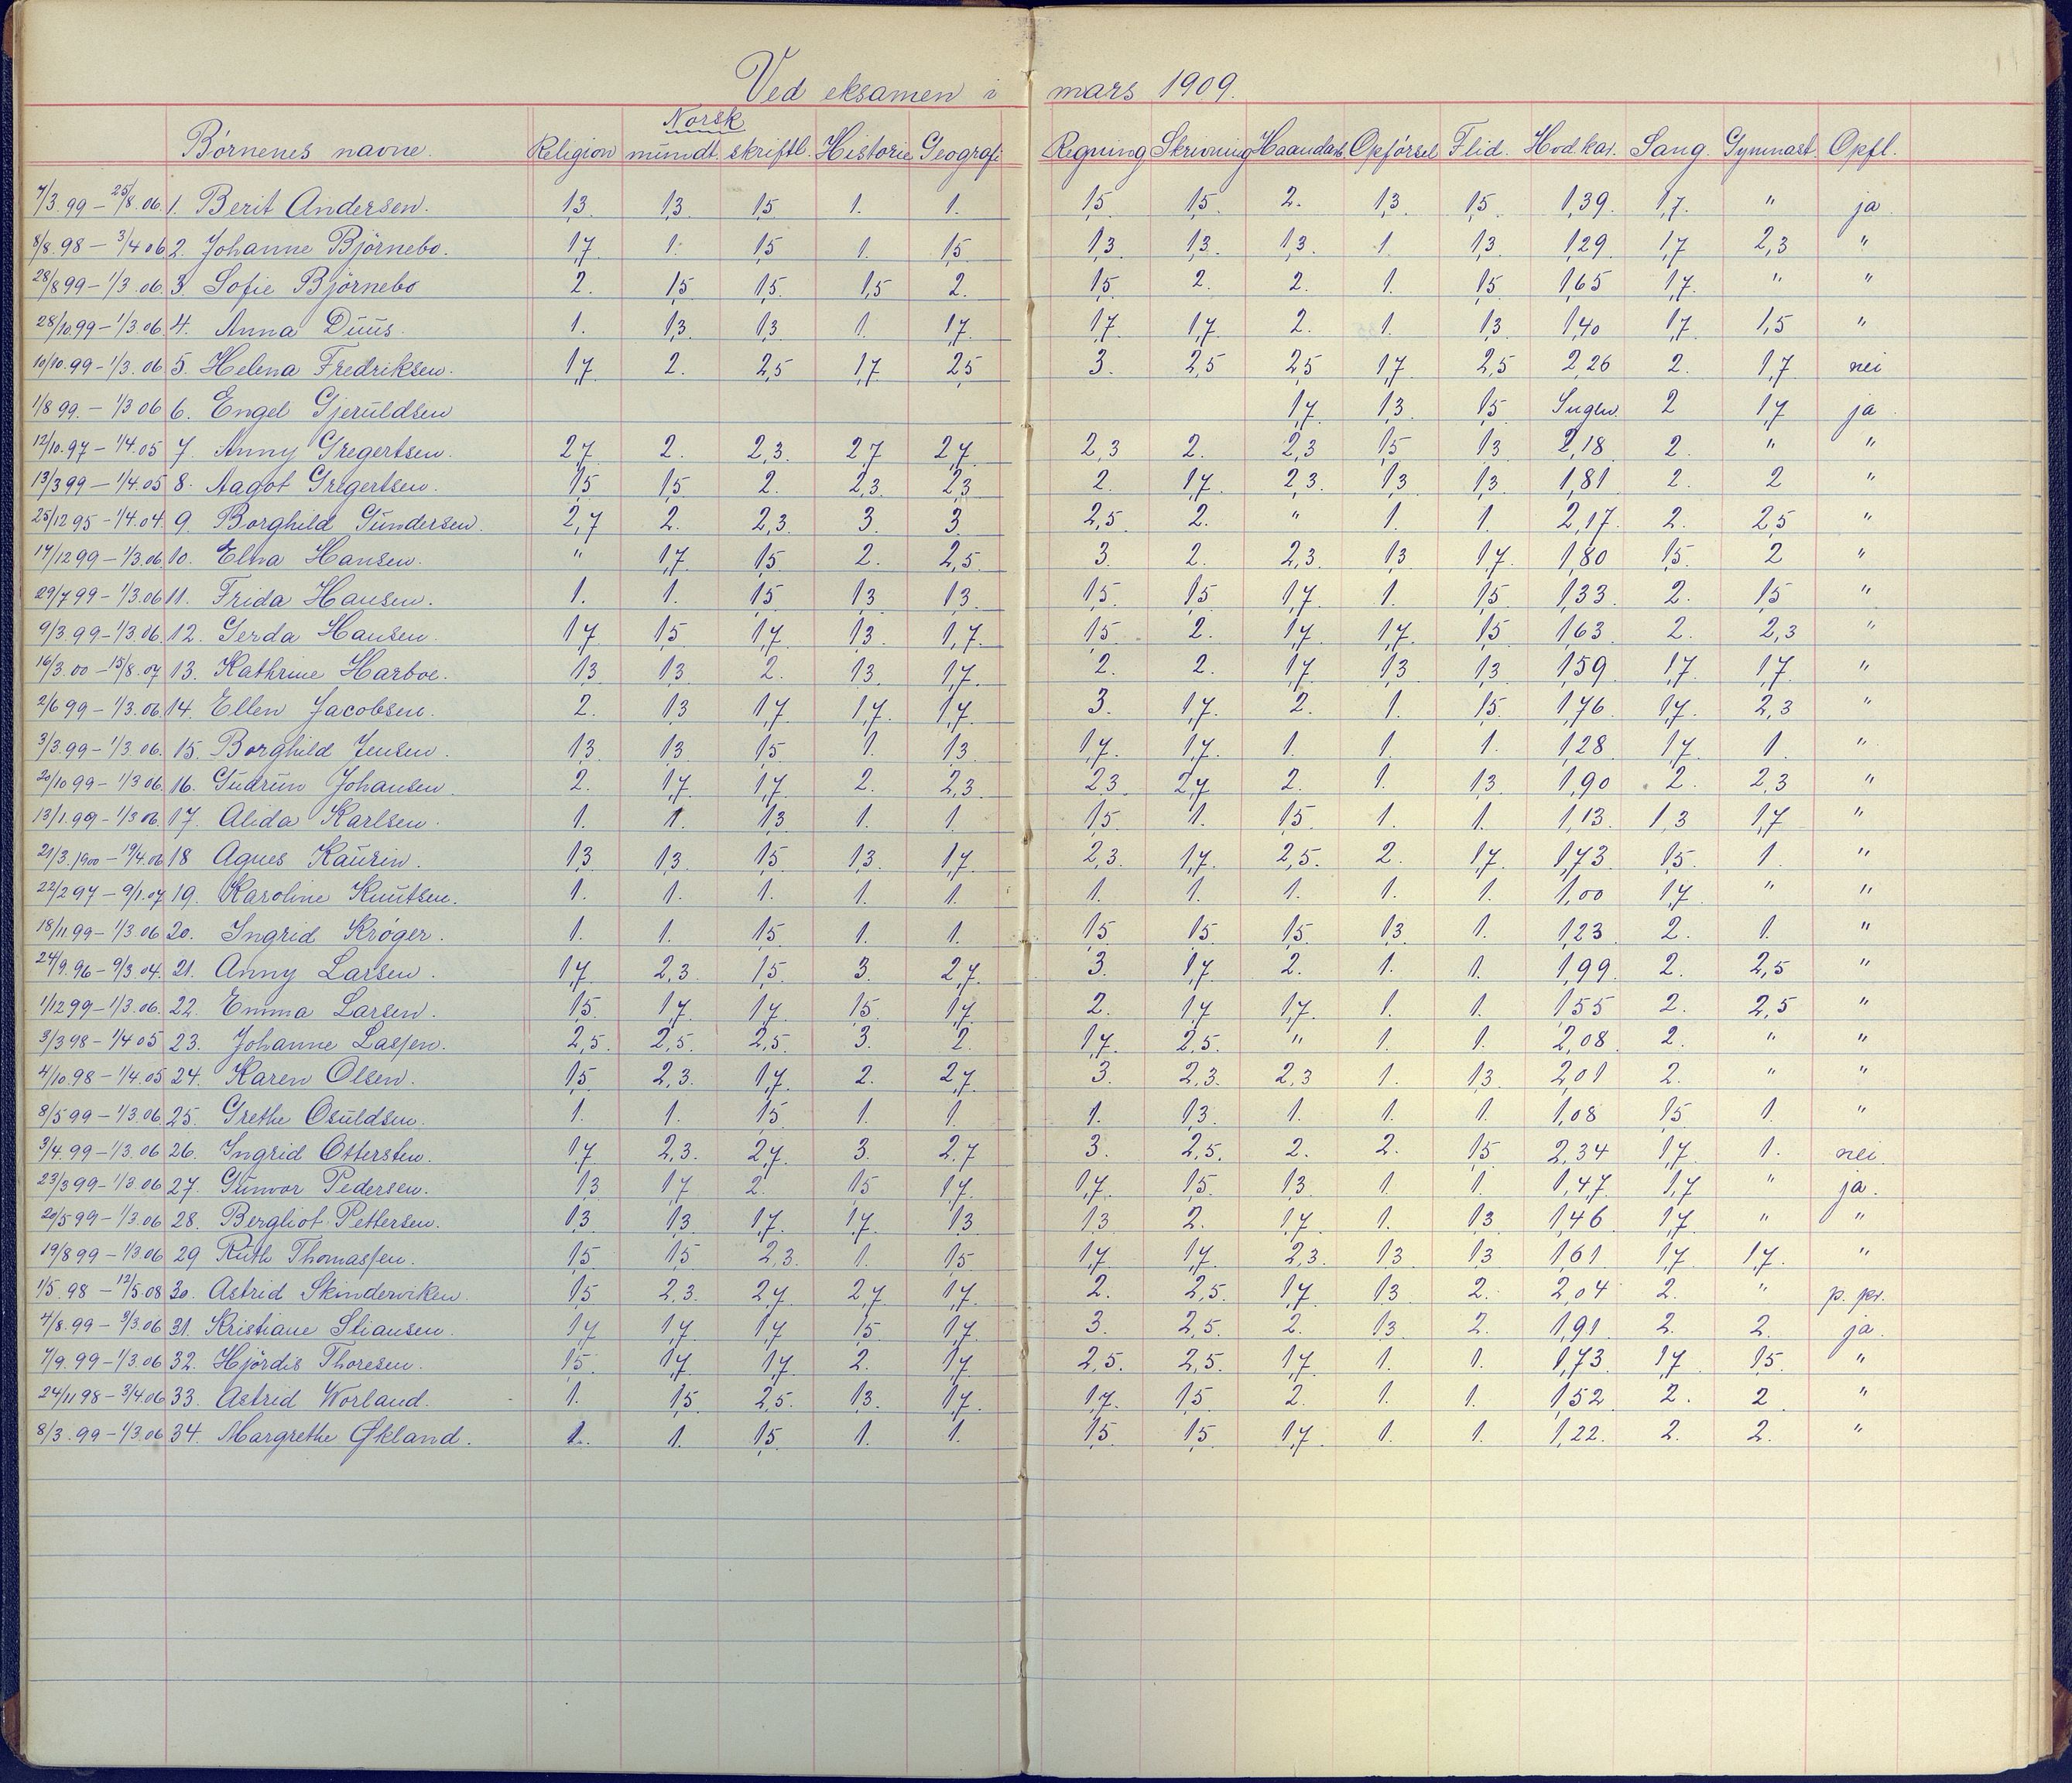 Ved eksamen i mars 1909.
Norsk
Børnenes navne. Religion mundt. skriftl. Historie Geografi Regning Skrivning Haandarb. Opførsel Flid. Hvd.kar. Sang. Gymnast. Opfl.
7/3.99 – 25/8.06. 1. Berit Andersen. 1,3. 1,3. 1,5. 1. 1. 1,5. 1,5. 2. 1,3. 1,5. 1,39. 1,7. " ja.
8/8.98 – 3/4 06 2. Johanne Bjørnebo. 1,7. 1. 1,5. 1. 1,5. 1,3. 1,3. 1,3. 1. 1,3. 1,29. 1,7 2,3 "
28/8 99 – 1/3.06. 3. Sofie Bjørnebo 2. 1,5 1,5. 1,5 2. 1,5. 2. 2. 1. 1,5. 1,65 1,7. " "
28/10.99 – 1/3 06. 4. Anna Duus. 1. 1,3. 1,3. 1. 1,7. 1,7. 1,7. 2. 1. 1,3 1,40 1,7 1,5 "
10/10.99 – 1/3.06 5. Helena Fredriksen. 1,7. 2. 2,5 1,7 2,5 3. 2,5 2,5 1,7. 2,5 2,26 2. 1,7 nei
1/8 99. – 1/3 06 6. Engel Gjeruldsen 1,7. 1,3. 1,5 Ingen. 2 1,7 ja.
12/10.97 – 1/4.05 7. Anny Gregertsen. 2,7 2. 2,3. 2,7 2,7. 2,3 2. 2,3 1,5 1,3 2,18. 2. " "
13/3 99 – 1/4.05 8. Aagot Gregertsen. 1,5 1,5 2. 2,3. 2,3 2. 1,7. 2,3. 1,3 1,3. 1,81 2. 2 "
25/12 95 – 1/4.04. 9. Borghild Gundersen. 2,7 2. 2,3. 3. 3. 2,5. 2. " 1. 1. 2,17. 2. 2,5 "
14/12 99 – 1/3.06 10. Elna Hansen. " 1,7. 1,5 2. 2,5. 3 2. 2,3. 1,3 1,7. 1,80 1,5. 2 "
29/7 99 – 1/3.06 11. Frida Hansen. 1. 1. 1,5 1,3 1,3. 1,5. 1,5 1,7. 1. 1,5. 1,33. 2. 1,5 "
9/3.99 – 1/3.06. 12. Gerda Hansen. 1,7 1,5 1,7 1,3. 1,7. 1,5 2. 1,7. 1,7. 1,5 1,63 2. 2,3 "
16/3.00 – 15/8.07 13. Kathrine Harboe. 1,3 1,3 2. 1,3. 1,7. 2. 2. 1,7. 1,3 1,3 1,59 1,7 1,7. "
2/6 99 – 1/3.06 14. Ellen Jacobsen. 2. 1,3 1,7 1,7. 1,7 3. 1,7. 2. 1. 1,5. 1,76 1,7. 2,3 "
3/3.99 – 1/3 06. 15. Borghild Jensen. 1,3 1,3 1,5 1. 1,3 1,7. 1,7. 1. 1. 1. 1,28 1,7 1. "
20/10 99 – 1/3 06. 16. Gudrun Johansen. 2. 1,7 1,7. 2. 2,3. 2,3. 2,7 2. 1. 1,3. 1,90 2. 2,3 "
13/1.99 – 1/3 06. 17. Alida Karlsen. 1. 1. 1,3 1. 1. 1,5 1. 1,5. 1. 1. 1,13. 1,3 1,7 "
21/3.1900 – 19/4.06 18 Agnes Kaurin. 1,3 1,3. 1,5 1,3. 1,7 2,3. 1,7. 2,5. 2. 1,7. 1,73 1,5. 1. "
22/2 97 – 9/1.07 19. Karoline Knutsen. 1. 1. 1. 1. 1. 1. 1. 1. 1. 1. 1,00 1,7. " "
18/11.99 – 1/3.06 20. Ingrid Krøger. 1. 1. 1,5. 1. 1. 1,5 1,5 1,5 1,3. 1. 1,23 2. 1. "
24/9.96 – 9/3.04. 21. Anny Larsen. 1,7. 2,3. 1,5. 3. 2,7. 3. 1,7 2. 1. 1. 1,99. 2. 2,5 "
1/12 99 – 1/3.06. 22. Emma Larsen. 1,5. 1,7 1,7. 1,5. 1,7 2. 1,7 1,7. 1. 1. 1,55 2. 2,5 "
3/3 98 – 1/4 05 23. Johanne Lassen. 2,5. 2,5. 2,5. 3. 2. 1,7. 2,5. " 1. 1. 2,08. 2. " "
4/10.98 – 1/4.05 24. Karen Olsen. 1,5 2,3. 1,7. 2. 2,7. 3. 2,3. 2,3 1. 1,3. 2,01 2. " "
8/5 99 – 1/3.06. 25. Grethe Osuldsen. 1. 1. 1,5 1. 1. 1. 1,3. 1. 1. 1. 1,08 1,5 1. "
3/4.99 – 1/3.06 26. Ingrid Ottersten. 1,7 2,3. 2,7. 3. 2,7 3. 2,5. 2. 2. 1,5 2,34 1,7. 1. nei.
23/3 99 – 1/3.06 27. Gunvor Pedersen. 1,3 1,7 2. 1,5 1,7. 1,7. 1,5. 1,3. 1. 1. 1,47. 1,7 " ja.
20/5 99 – 1/3.06 28. Bergliot Pettersen. 1,3. 1,3 1,7. 1,7. 1,3 1,3 2. 1,7. 1. 1,3 1,46 1,7. " "
19/8 99 – 1/3.06 29 Ruth Thomassen. 1,5. 1,5 2,3. 1. 1,5 1,7. 1,7 2,3. 1,3 1,3 1,61 1,7 1,7. "
1/5.98 – 12/5 08 30. Astrid Skinderviken. 1,5 2,3. 2,7. 2,7 1,7. 2. 2,5. 1,7 1,3. 2. 2,04 2. " p. pr.
4/8.99 – 3/3.06 31. Kristiane Stiansen. 1,7 1,7 1,7 1,5 1,7. 3. 2,5. 2. 1,3 2. 1,91. 2. 2. ja.
7/9.99 – 1/3.06 32. Hjørdis Thoresen. 1,5. 1,7. 1,7 2. 1,7 2,5. 2,5. 1,7 1. 1. 1,73. 1,7 1,5. "
24/11 98 – 3/4.06 33. Astrid Worland. 1. 1,5 2,5. 1,3. 1,7. 1,7. 1,5 2. 1. 1. 1,52. 2. 2 "
8/3.99 – 1/3.06 34. Margrethe Økland. 1. 1. 1,5. 1. 1. 1,5 1,5 1,7. 1. 1. 1,22. 2. 2. "